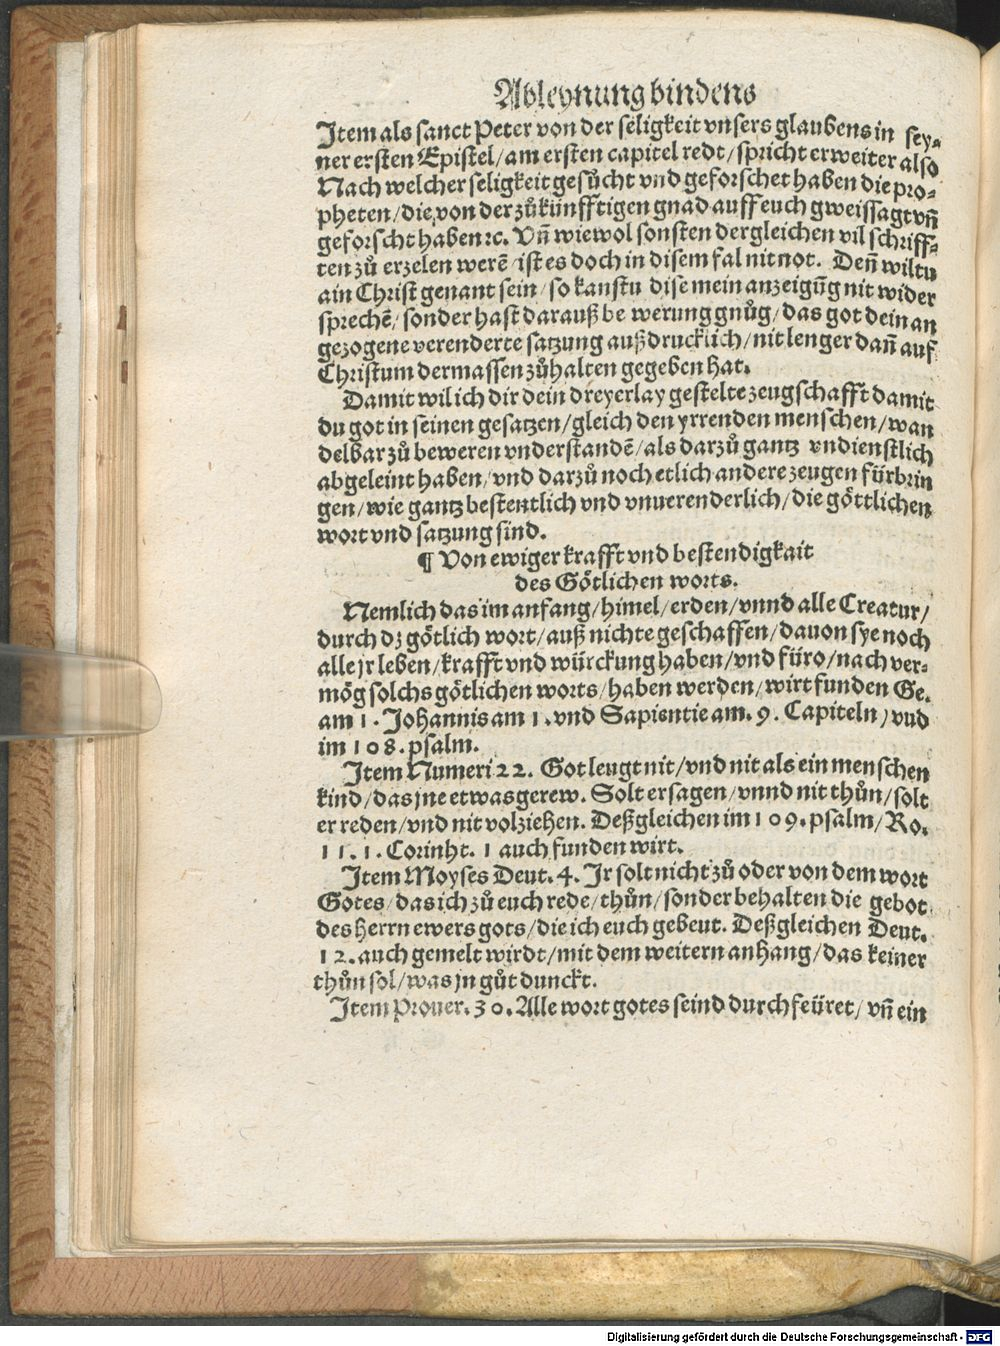 Ableynung bindens
Item als sanct Peter von der seligkeit vnsers glaubens in sey-
ner ersten Epistel / am ersten capitel redt / spricht er weiter also
Nach welcher seligkeit gesůcht vnd geforschet haben die pro-
pheten / die von der zůkünfftigen gnad auff euch gweissagt vñ
geforscht haben ꝛc. Vñ wiewol sonsten dergleichen vil schriff-
ten zů erzelen werē / ist es doch in disem fal nit not. Deñ wiltu
ain Christ genant sein / so kanstu dise mein anzeigūg nit wider
sprechē / sonder hast darauß be werung gnůg / das got dein an
gezogene verenderte satzung außdrucklich / nit lenger dañ auf
Christum dermassen zůhalten gegeben hat.
Damit wil ich dir dein dreyerlay gestelte zeugschafft damit
du got in seinen gesatzen / gleich den yrrenden menschen / wan
delbar zů beweren vnderstandē / als darzů gantz vndienstlich
abgeleint haben / vnd darzů noch etlich andere zeugen fürbrin
gen / wie gantz bestentlich vnd vnuerenderlich / die göttlichen
wort vnd satzung sind.
¶ Von ewiger krafft vnd bestendigkait
des Götlichen worts.
Nemlich das im anfang / himel / erden / vnnd alle Creatur /
durch dz götlich wort / auß nichte geschaffen / dauon sye noch
alle jr leben / krafft vnd würckung haben / vnd füro / nach ver-
mög solchs götlichen worts / haben werden / wirt funden Ge.
am 1. Johannis am 1. vnd Sapientie am. 9. Capiteln / vnd
im 108. psalm.
Item Numeri 22. Got leugt nit / vnd nit als ein menschen
kind / das jne etwas gerew. Solt er sagen / vnnd nit thůn / solt
er reden / vnd nit volziehen. Deßgleichen im 109. psalm / Ro.
11. 1. Corinht. 1 auch funden wirt.
Item Moyses Deut. 4. Ir solt nicht zů oder von dem wort
Gotes / das ich zů euch rede / thůn / sonder behalten die gebot
des herrn ewers gots / die ich euch gebeut. Deßgleichen Deut.
12. auch gemelt wirdt / mit dem weitern anhang / das keiner
thůn sol / was jn gůt dunckt.
Item Prouer. 30. Alle wort gotes seind durchfeüret / vñ ein
Digitalisierung gefördert durch die Deutsche Forschungsgemeinschaft - DFG